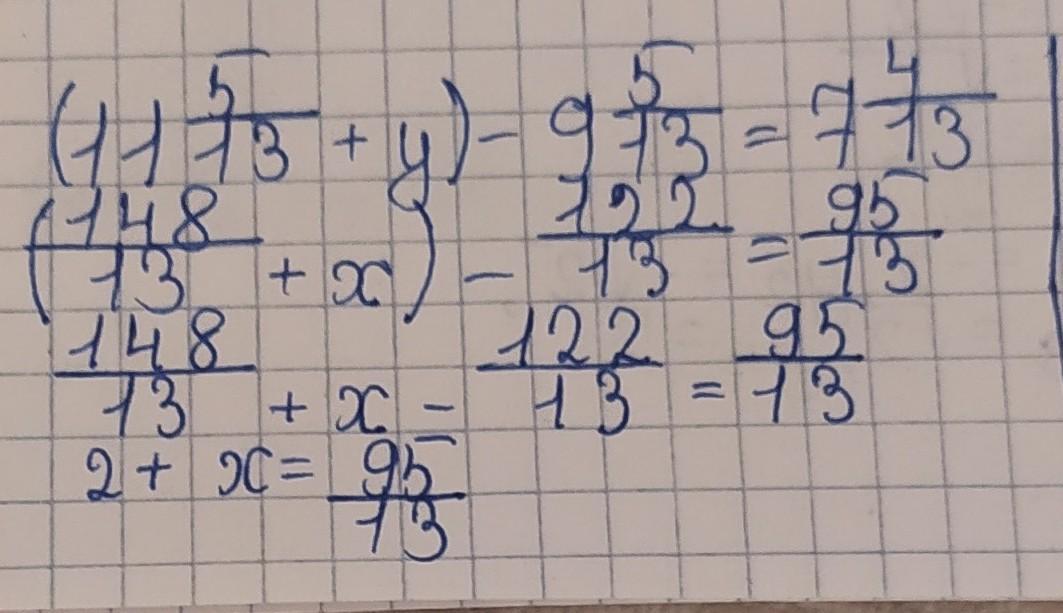 (11 5/13 + y) - 9 5/13 = 7 4/13
(148/13 + x) - 122/13 = 95/13
148/13 + x - 122/13 = 95/13
2 + x = 95/13